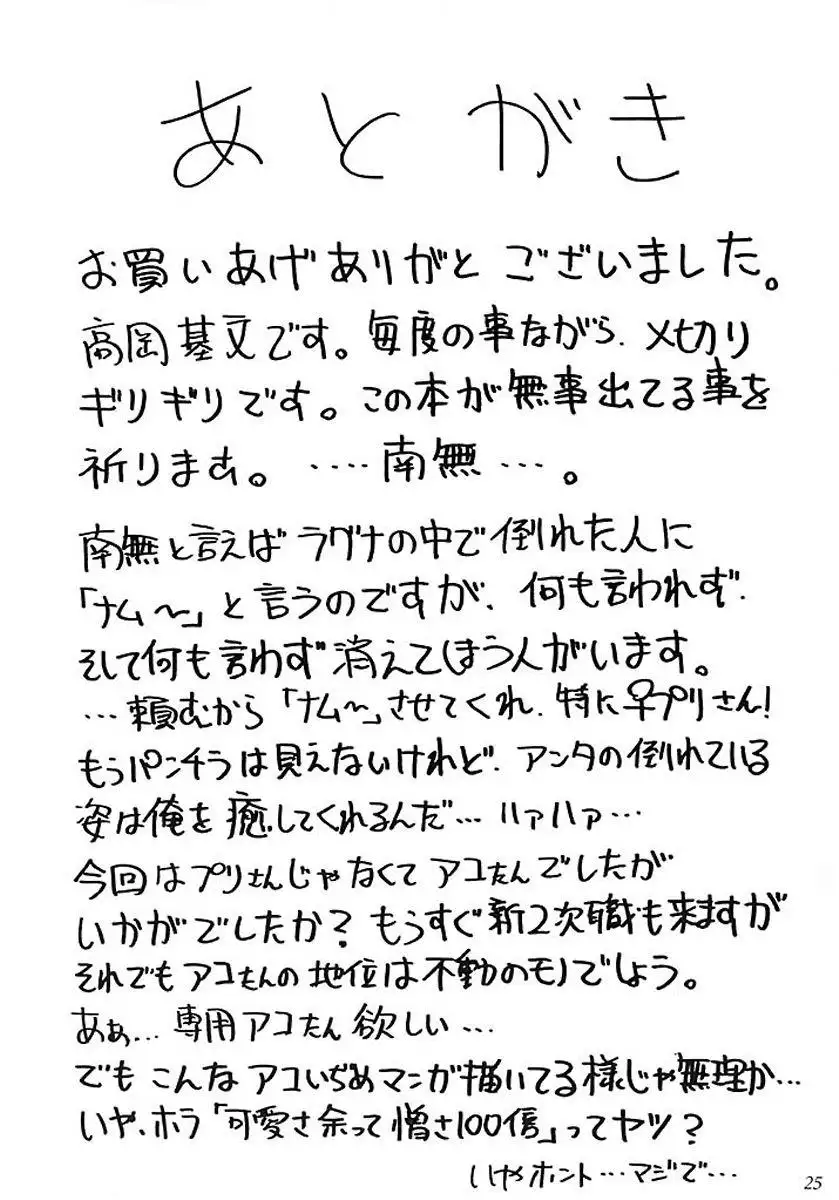 あとがき
お買いあげありがとございました。
高岡基文です。毎度の事ながら、〆切り
ギリギリです。この本が無事出てる事を
祈ります。‥‥南無…。
南無と言えばラグナの中で倒れた人に
「ナム～」と言うのですが、何も言われず、
そして何も言わず消えてしまう人がいます。
…頼むから「ナム～」させてくれ、特に♀プリさん!
もうパンチラは見えないけれど、アンタの倒れている
姿は俺を癒してくれるんだ…ハァハァ…
今回はプリさんじゃなくてアコたんでしたが
いかがでしたか?もうすぐ新2次職も来ますが
それでもアコたんの地位は不動のモノでしょう。
あぁ…専用アコたん欲しい…
でもこんなアコいぢめマンガ描いてる様じゃ無理か…
いや、ホラ「可愛さ余って憎さ100倍」ってヤツ?
いやホント…マジで…
25